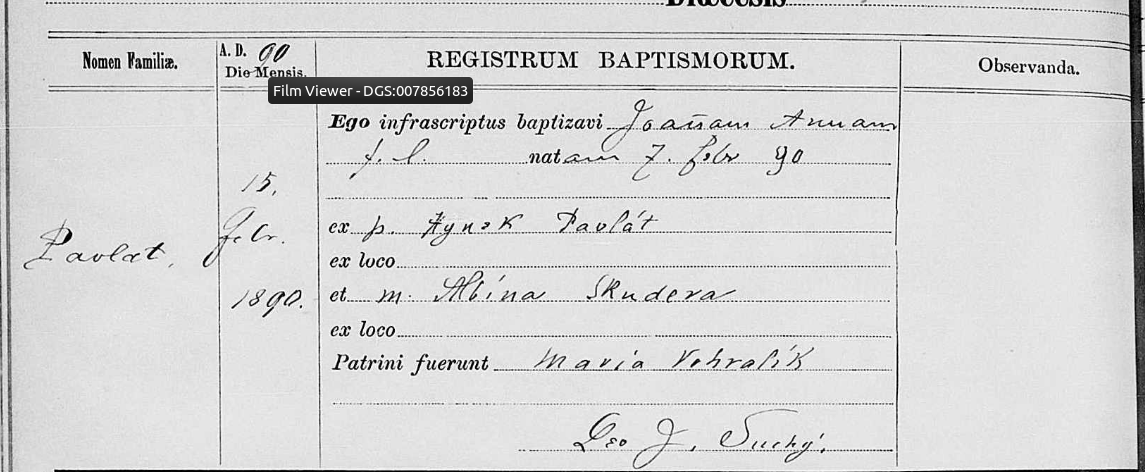 DIŒCESIS
Nomen Familiæ.
A. D. 90
Die Mensis.
REGISTRUM BAPTISMORUM.
Observanda.
Film Viewer - DGS:007856183
Ego infrascriptus baptizavi Joañam Annam
f. l. natam 7. febr 90
15.
febr.
1890.
Pavlat.
ex p. Hynek Pavlát
ex loco
et m. Albína Skudera
ex loco
Patrini fuerunt Maria Vohralík
Leo J. Suchý.